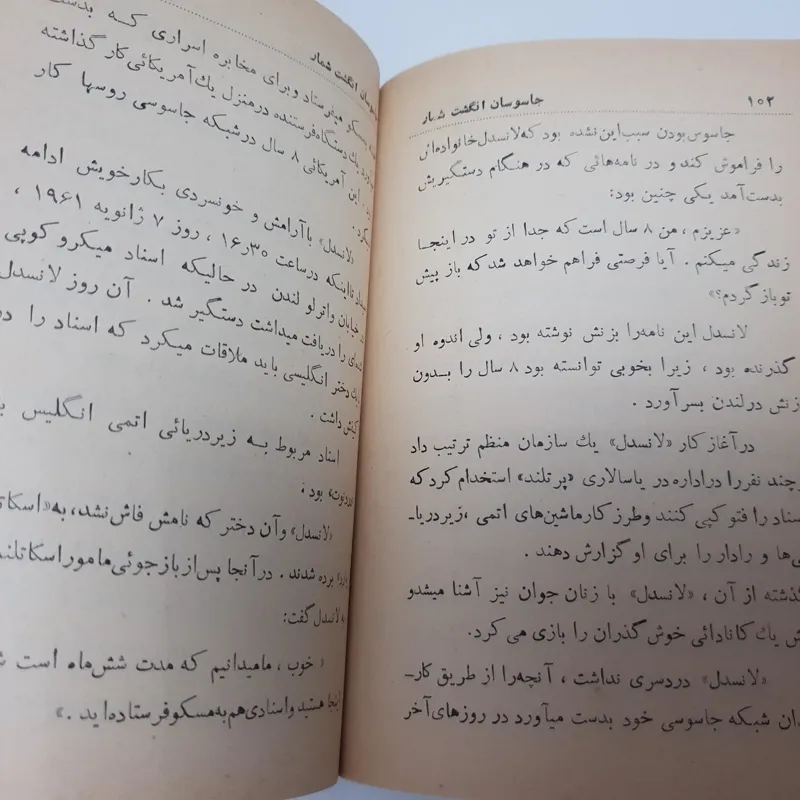 ۱۰۲ جاسوسان انگشت شمار
جاسوس بودن سبب این نشده بود که لانسدل خانواده‌اش
را فراموش کند و در نامه‌هائی که در هنگام دستگیریش
بدست آمد یکی چنین بود:
«عزیزم ، من ۸ سال است که جدا از تو در اینجـا
زندگی میکنم . آیا فرصتی فراهم خواهد شد که باز پیش
تو باز گردم؟»
لانسدل این نامه‌را بزنش نوشته بود ، ولی اندوه او
گذرنده بود ، زیرا بخوبی توانسته بود ۸ سال را بـدون
زنش در لندن بسر آورد .
در آغاز کار «لانسدل» یك سازمان منظم ترتیب داد
چند نفررا دراداره در یاسالاری «پرتلند» استخدام کرد که
اسناد را فتو کپی کنند و طرز کار ماشین‌های اتمی ، زیردریا-
ئی‌ها و رادار را برای او گزارش دهند .
گذشته از آن ، «لانسدل» با زنان جوان نیز آشنا میشد و
یك کانادائی خوش گذران را بازی می کرد.
«لانسدل» دردسری نداشت ، آنچه‌را از طریق کار-
شبکه جاسوسی خود بدست میآورد در روزهای آخر
انگشت شمار
میفرستاد وبرای مخابره اسراری کـه
یك دستگاه فرستنده درمنزل یك آمریکائی کار گذاشته
. این آمریکائی ۸ سال در شبکه جاسوسی روسها کار
«لانسدل» با آرامش و خونسردی بکار خویش ادامه
تا اینکه در ساعت ۱۶ر۳۰ ، روز ۷ ژانویه ۱۹۶۱ ،
خیابان واترلو لندن در حالیکه اسناد میکرو کوپی
را دریافت میداشت دستگیر شد . آن روز لانسدل
دختر انگلیسی باید ملاقات میکرد که اسناد را در
داشت .
اسناد مربوط بـه زیردریائی اتمی انگلیس
بود ،
«لانسدل» وآن دختر که نامش فاش نشد، به
برده شدند . در آنجا پس از باز جوئی مامور
لانسدل گفت:
« خوب ، مامیدانیم که مدت شش ماه است
اینجا هستید و اسنادی هم به مسکو فرستاده اید . »